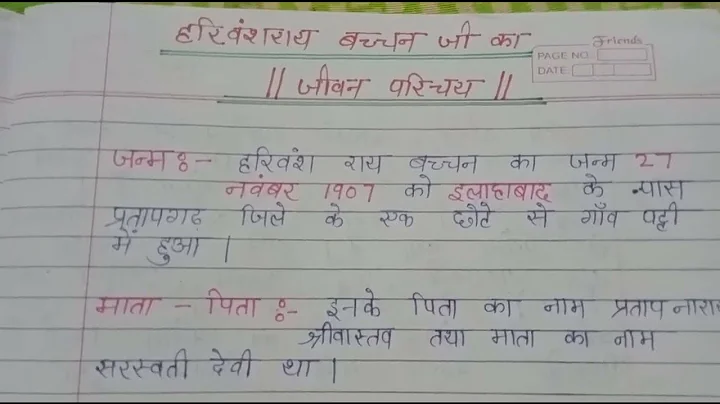 हरिवंशराय बच्चन जी का
Friends
PAGE NO.
DATE
|| जीवन परिचय ||
जन्म ः- हरिवंश राय बच्चन का जन्म 27
नवंबर 1907 को इलाहाबाद के पास
प्रतापगढ़ जिले के एक छोटे से गाँव पट्टी
में हुआ |
माता - पिता ः- इनके पिता का नाम प्रताप नारा
श्रीवास्तव तथा माता का नाम
सरस्वती देवी था |